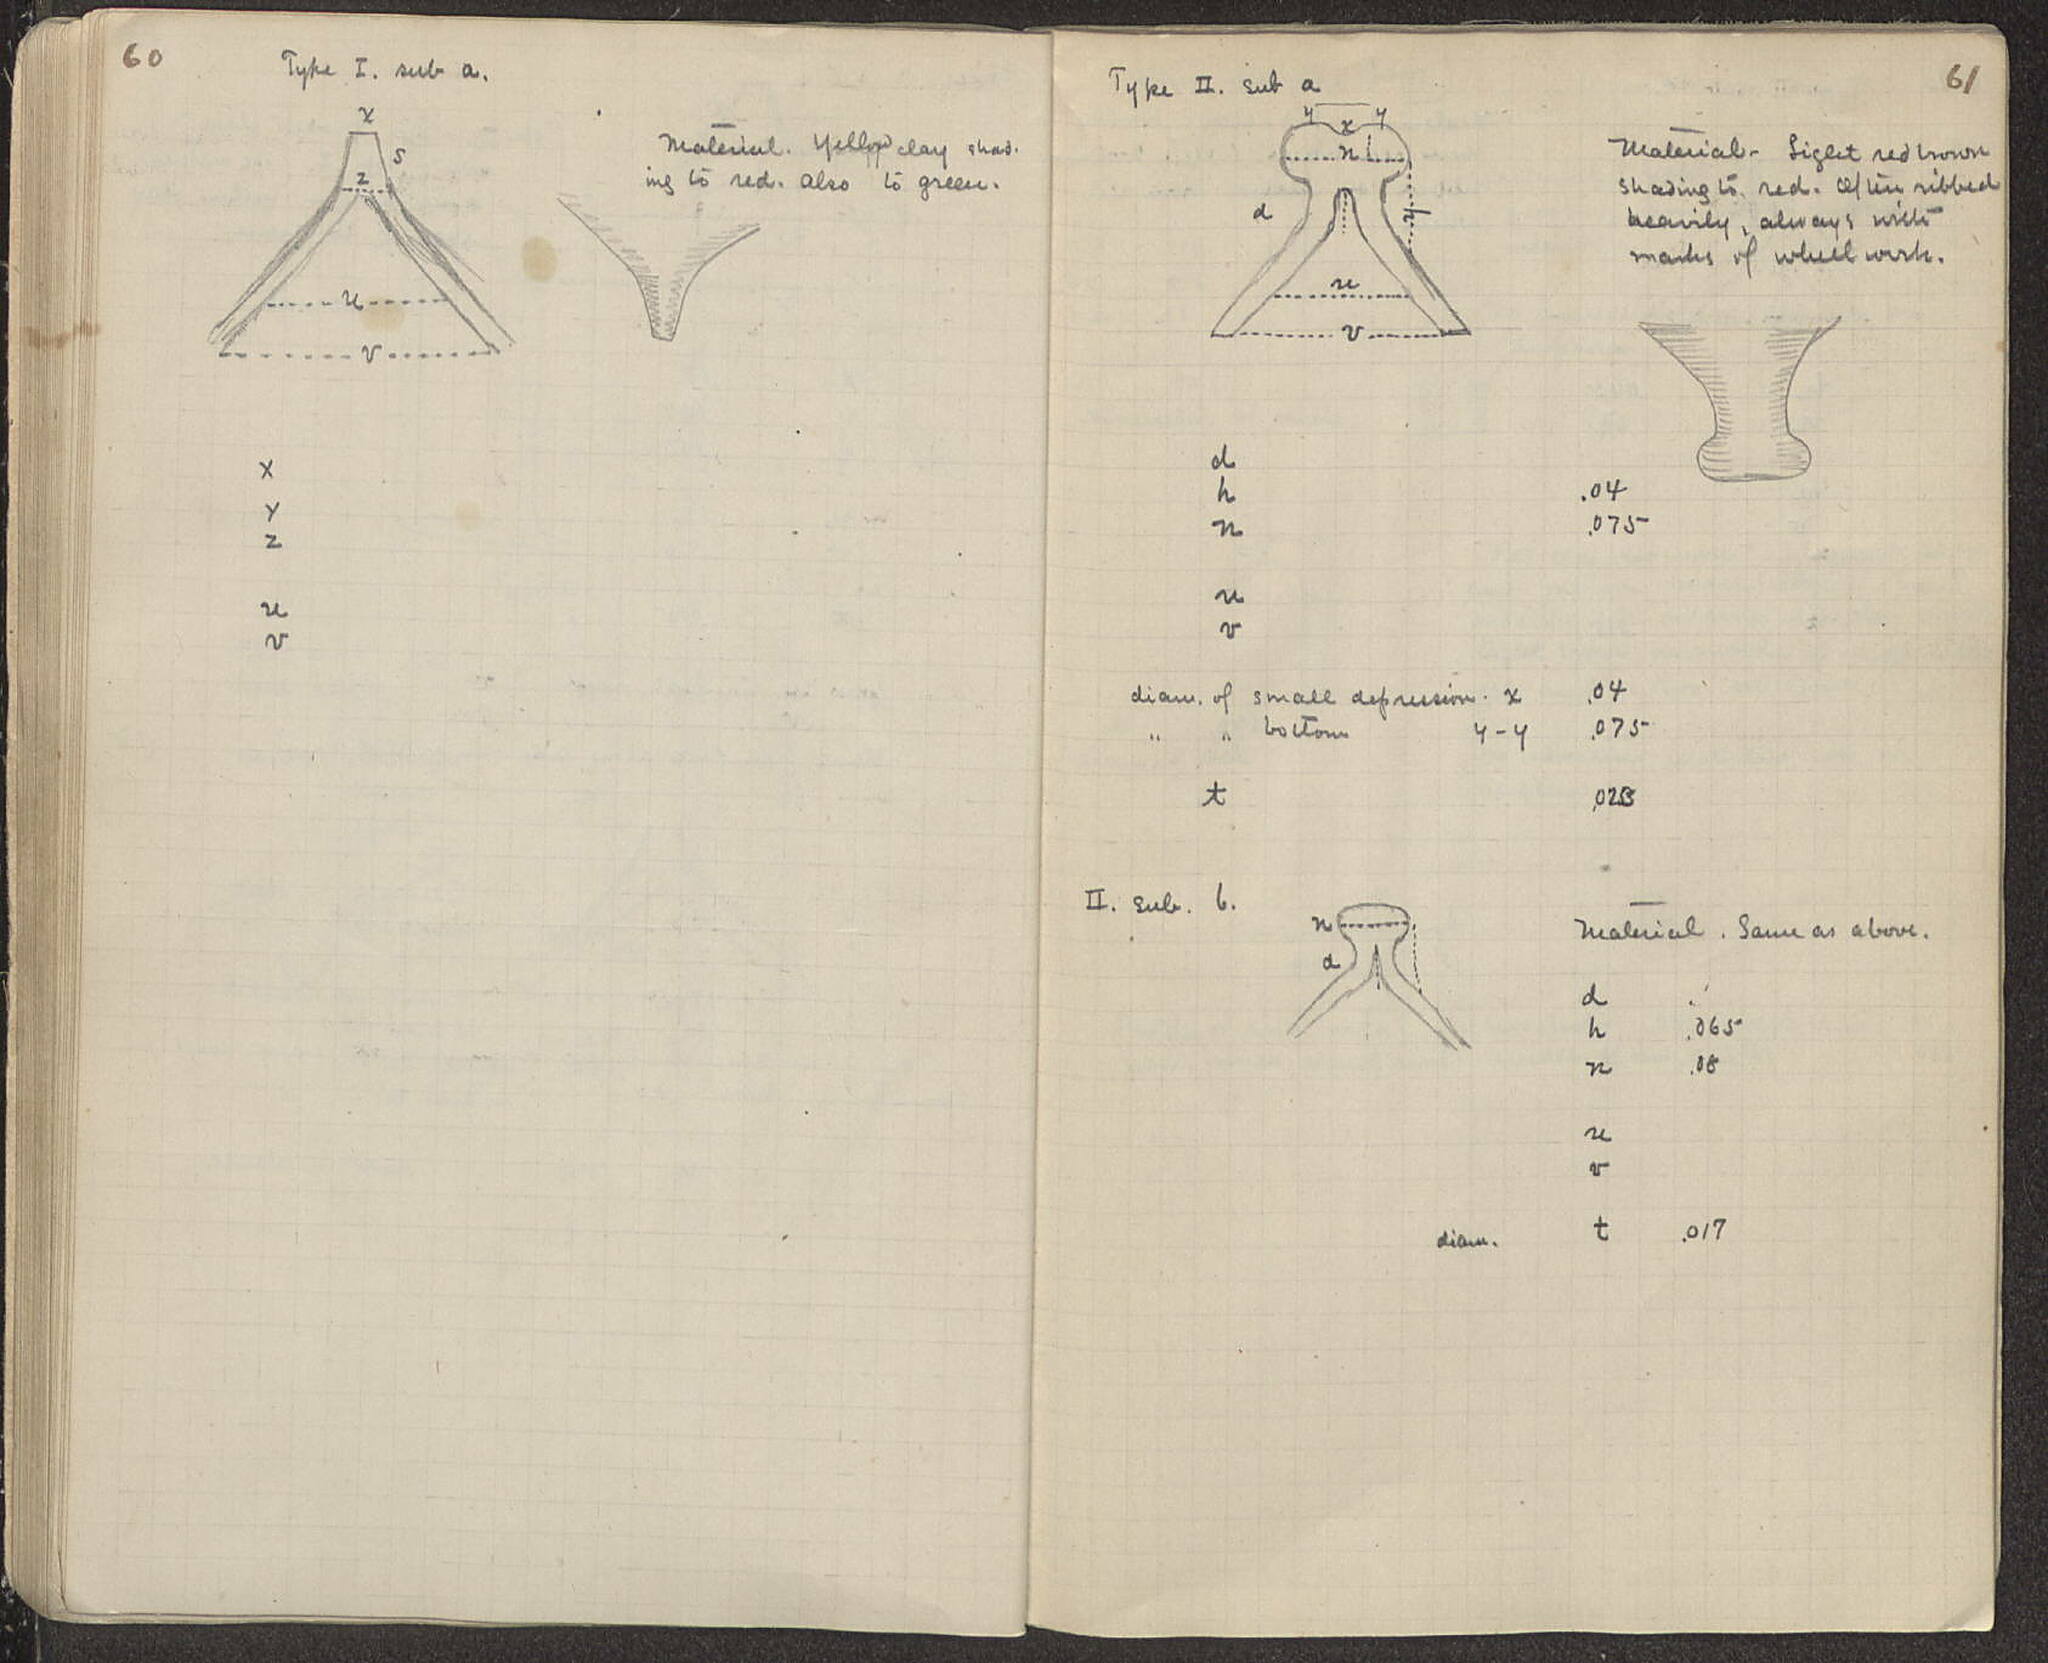 60
Type I. sub a.
x
s
z
u
v
Material. Yellow clay shad-
ing to red. also to green.
x
y
z
u
v
61
Type II. sub a
y x y
n
d
h
u
v
Material - Light red brown
shading to red. Often ribbed
heavily, always with
marks of wheel work.
d
h .04
n .075
u
v
diam. of small depression. x .04
" " bottom y-y .075
t
II. sub. b.
n
d
Material. Same as above.
d .
h .065
n .08
u
v
diam. t .017